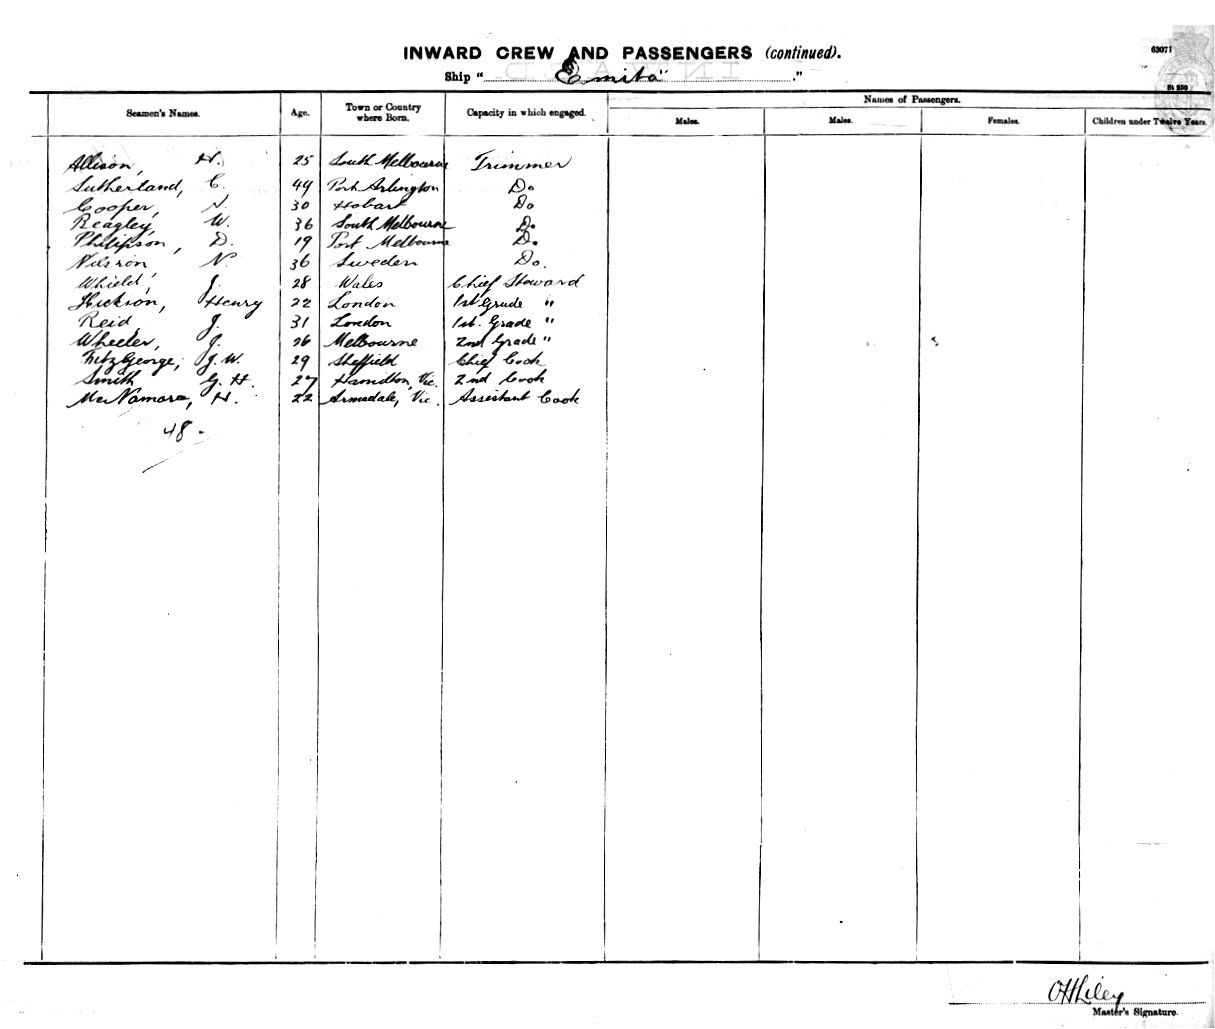 63071
INWARD CREW AND PASSENGERS (continued).
Ship "Emita"."
St 250
Seamen's Names. Age. Town or Country where Born. Capacity in which engaged. Names of Passengers.
Males. Males. Females. Children under Twelve Years.
Allison, H. 25 South Melbourne Trimmer
Sutherland, C. 49 Port Arlington Do
Cooper, 30 Hobart Do
Beagley, W. 36 South Melbourne Do.
Philipson, D. 19 Port Melbourne Do.
Nilsson N. 36 Sweden Do.
Whield, J. 28 Wales Chief Steward
Hickson, Henry 22 London 1st Grade "
Reid, J. 31 London 1st. Grade "
Wheeler, J. 26 Melbourne 2nd Grade "
FitzGeorge, J. W. 29 Sheffield Chief Cook
Smith G. H. 27 Hamilton, Vic. 2nd Cook
McNamara, H. 22 Armadale, Vic. Assistant Cook
48.
Master's Signature.